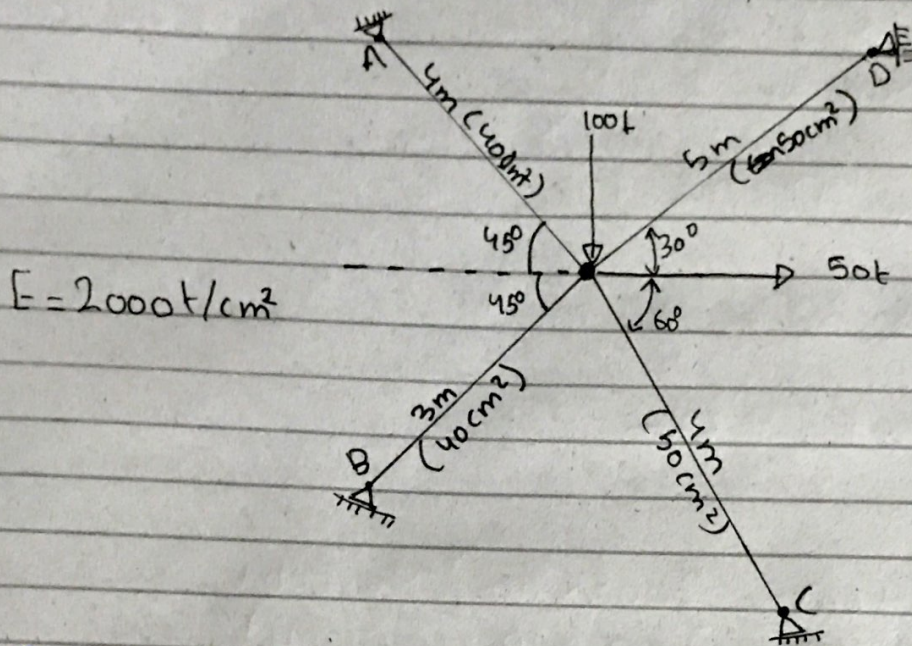 A
4m (40cm²)
100t
D
5m
(50cm²)
45°
30°
50t
E=2000t/cm²
45°
60°
3m
(40cm²)
4m
(50cm²)
B
C